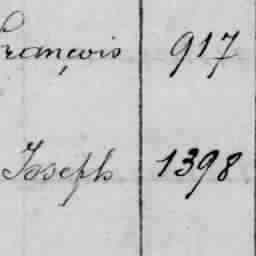 François 917
Joseph 1398